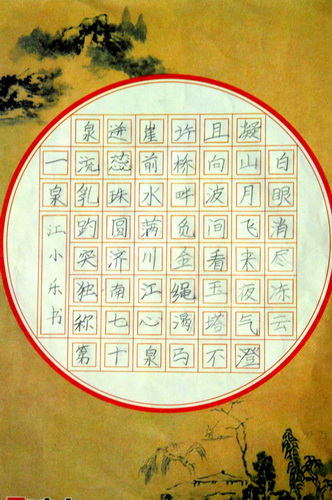 白眼消尽冻云
凝山月飞来夜气澄
且向波间看玉塔不
许觅金绳渴马
崖前水满川江心泉
迸蕊珠圆济南七十
泉流乳趵突独称第
一泉
江小乐书